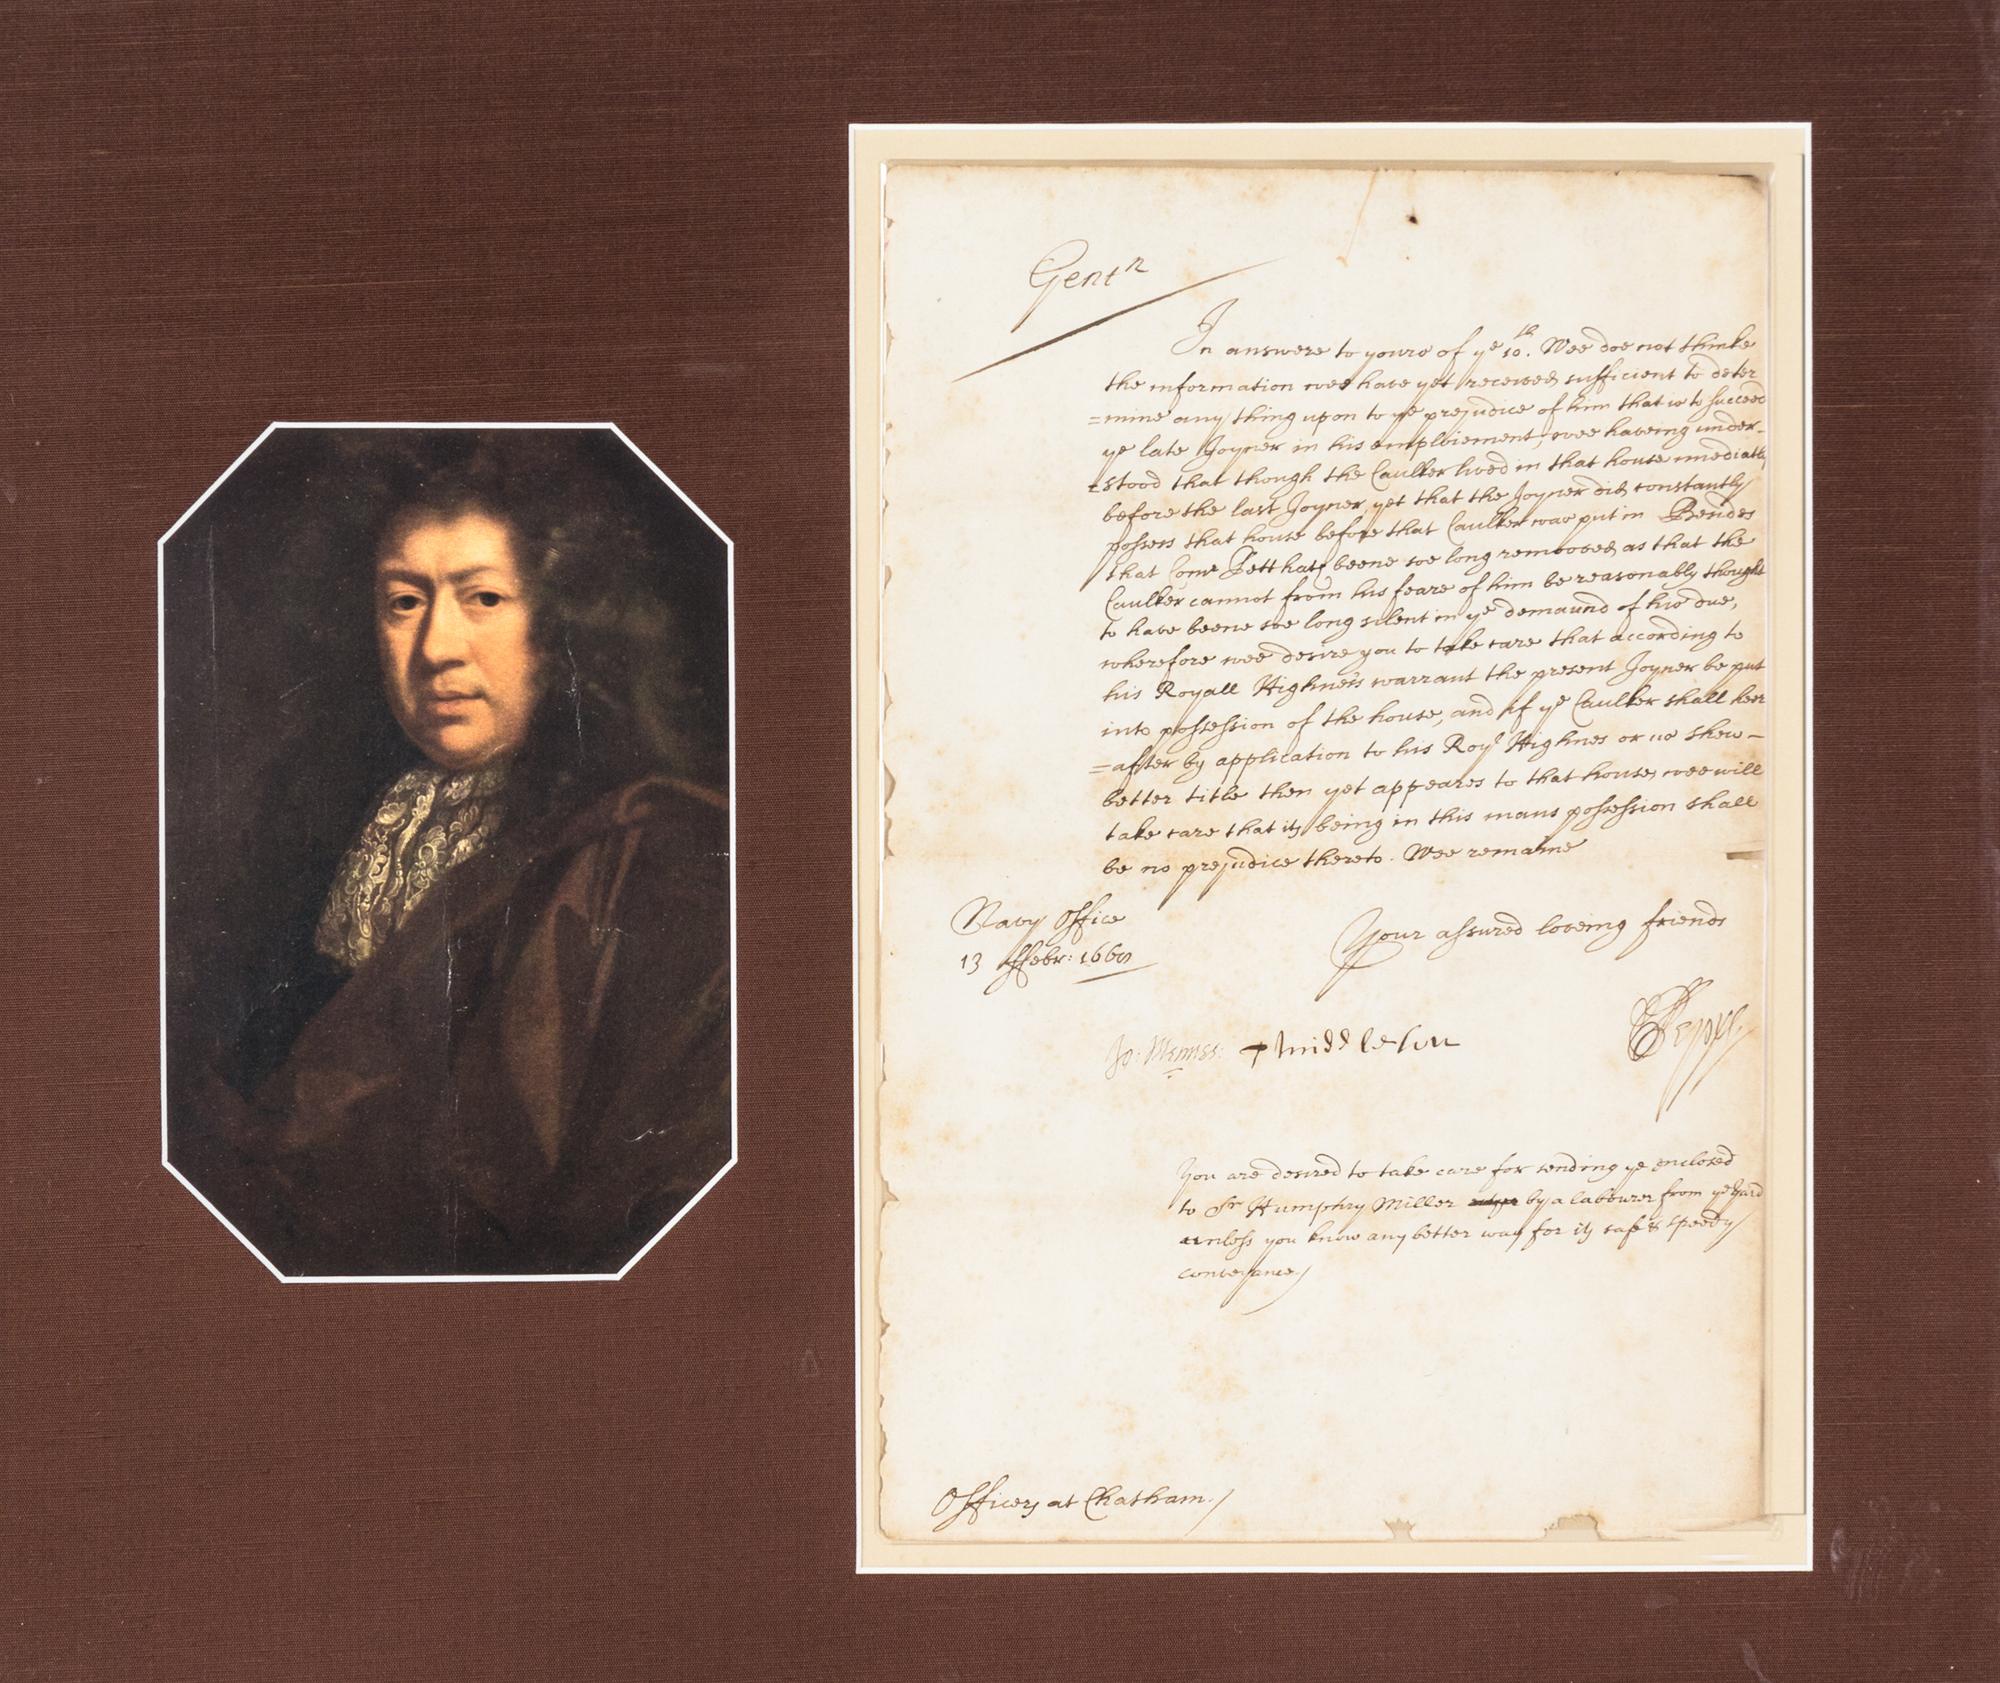 Gentⁿ
In answere to yours of yᵉ 10ᵗʰ. Wee doe not thinke
the information wee have yet received sufficient to deter
=mine any thing upon to yᵉ prejudice of him that is to succeed
yᵉ late Joyner in his emploiement, wee haveing under-
=stood that though the Caulker lived in that house imediatly
before the last Joyner, yet that the Joyner did constantly
possess that house before that Caulker was put in Besides
that Comʳ Pett hath beene soe long remooved as that the
Caulker cannot from his feare of him be reasonably thought
to have beene soe long silent in yᵉ demaund of his due,
wherefore wee desire you to take care that according to
his Royall Highness warrant the present Joyner be put
into possession of the house, and if yᵉ Caulker shall here
=after by application to his Royˡ Highnes or us shew-
better title then yet appeares to that house, wee will
take care that its being in this mans possession shall
be no prejudice thereto. Wee remaine
Navy Office
13 ffebr: 166
Your assured loveing friends
Jo: Mennes: TMiddleton
SPepys
You are desired to take care for sending yᵉ enclosed
to Sʳ Humphry Miller by a labourer from yᵉ Yard
unless you know any better way for its safe & speedy
conveyance/
Officers at Chatham./